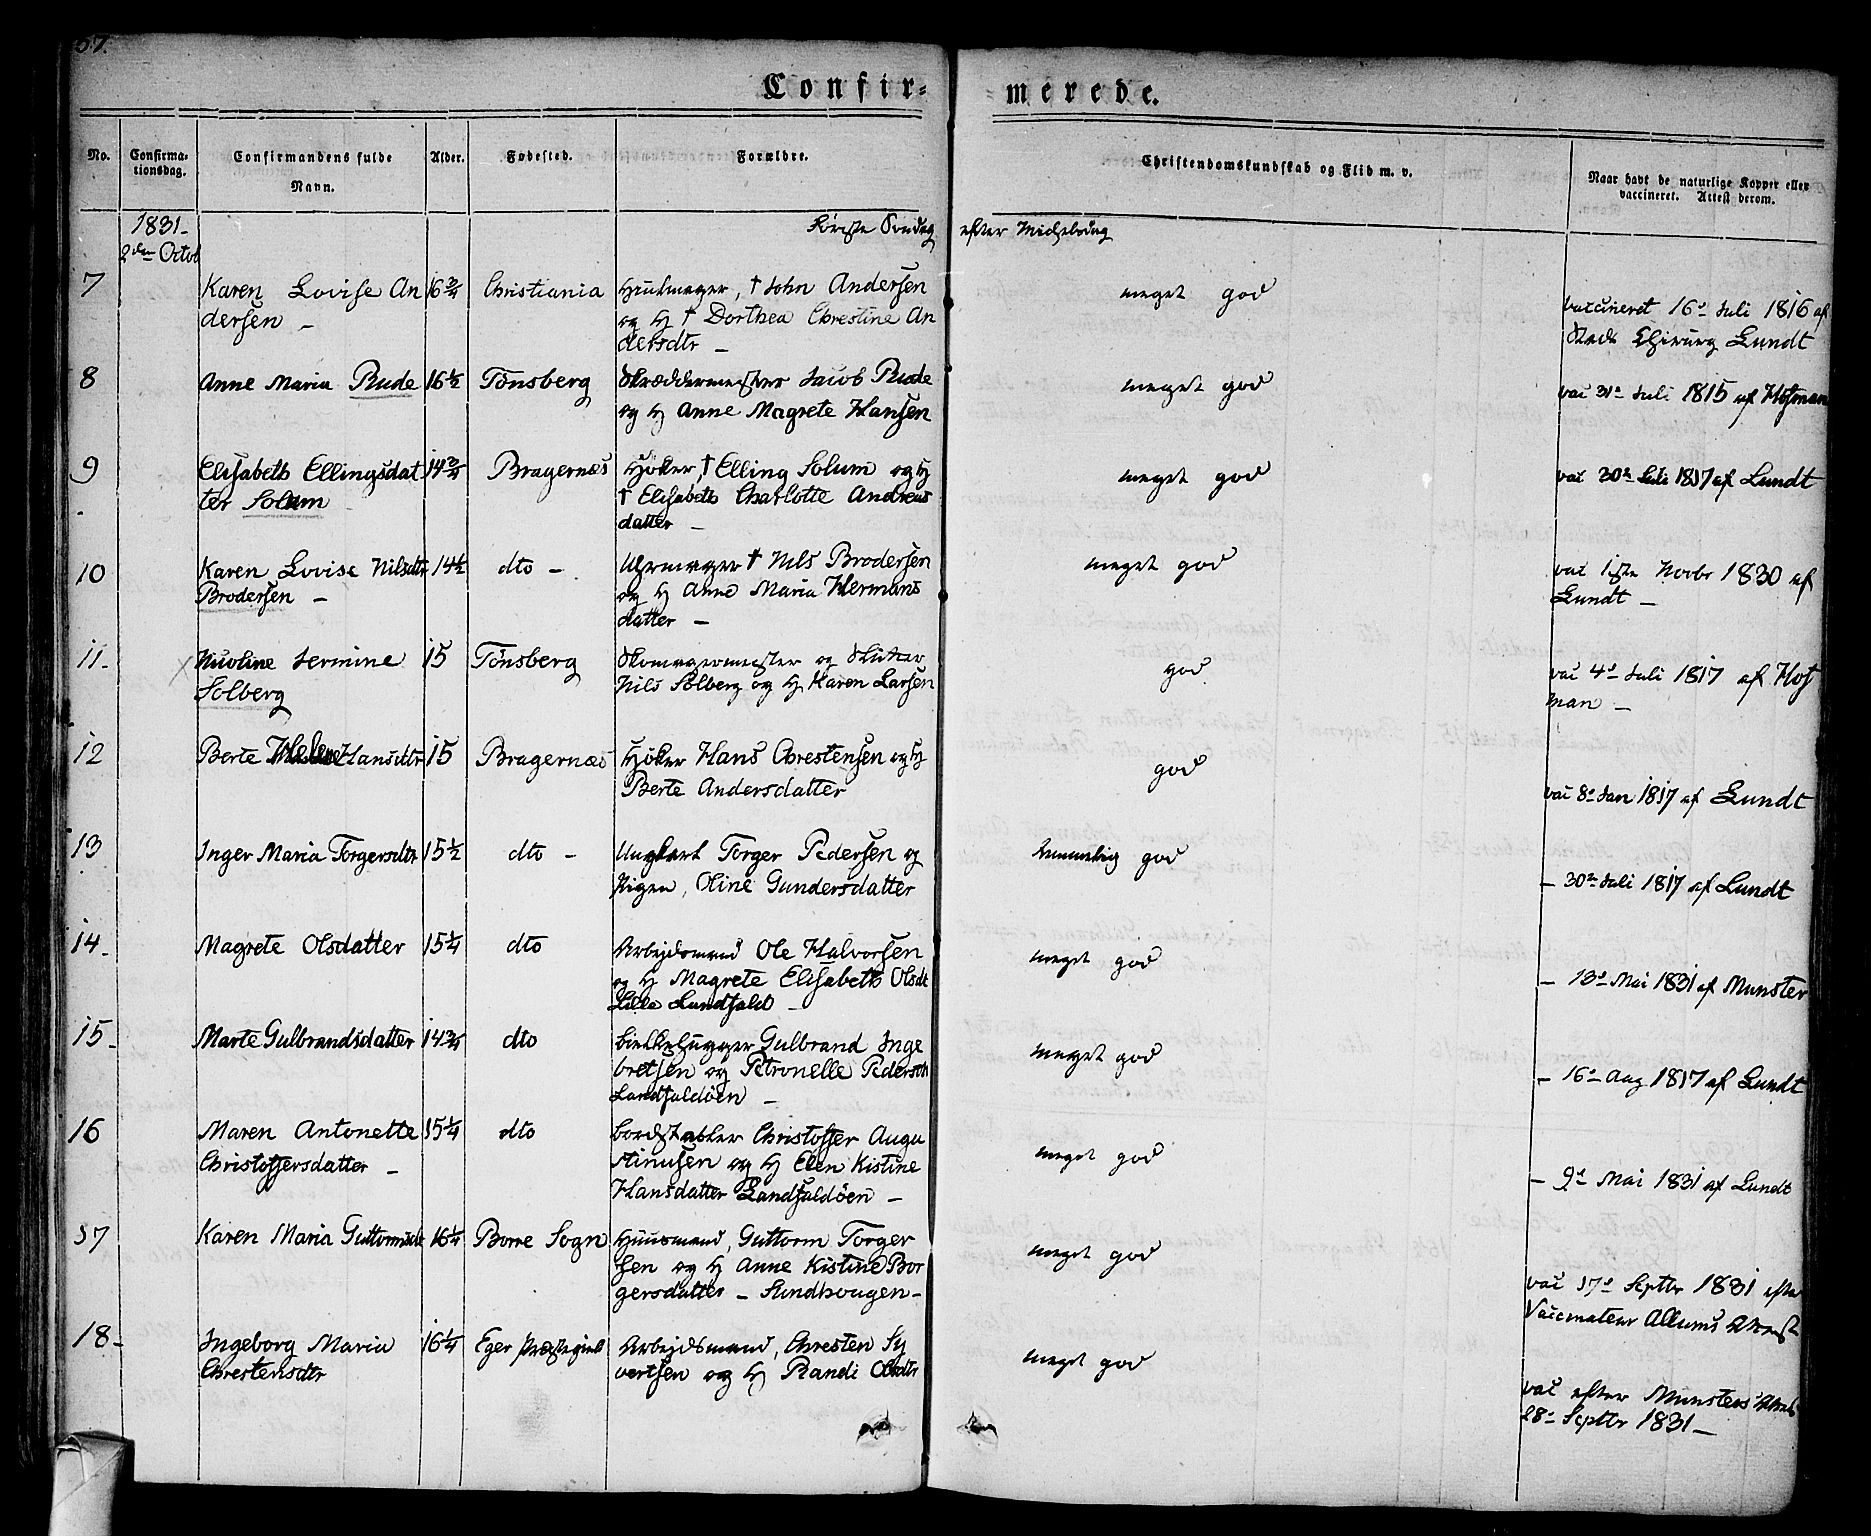 57.
Confir-
merede.
No.
Confirma-
tionsdag.
Confirmandens fulde
Navn.
Alder.
Fødested.
Forældre.
Christendomskundskab og Flid m. v.
Naar havt de naturlige Kopper eller
vaccineret. Attest derom.
1831
2den Octob
Første Søndag efter Michelsdag
7 Karen Lovise An 16 3/4 Christiania † John Andersen meget god vaccineret 16de Juli 1816 af
dersen og H † Dorthea Chrestine An Stads Chirurg Lundt
dersdtr
8 Anne Maria Rude 16 1/2 Tønsberg Skræddermester Jacob Rude meget god vac 31te Juli 1815 af Hofman
og H Anne Magrete Hansen
9 Elisabeth Ellingsdat 14 3/4 Bragernæs Høker † Elling Solum og H meget god vac 30te Juli 1817 af Lundt
ter Solum † Elisabeth Charlotte Andreas
datter
10 Karen Lovise Nilsdtr 14 1/2 dto Uhrmager † Nils Brodersen meget god vac 1ste Novbr 1830 af
Brodersen og H Anne Maria Hermans Lundt
datter
11 Nicoline Jermine 15 Tønsberg Skomagermester og god vac 4de Juli 1817 af Hof
Solberg Nils Solberg og H Karen Larsen man
12 Berte Helene Hansdtr 15 Bragernæs Høker Hans Chrestensen og H god vac 8de Jan 1817 af Lundt
Berte Andersdatter
13 Inger Maria Torgersdtr 15 1/2 dto Ungkarl Torger Pedersen og temmelig god 30te Juli 1817 af Lundt
Pigen, Oline Gundersdatter
14 Magrete Olsdatter 15 1/4 dto Arbejdsmand Ole Halvorsen meget god 13de Mai 1831 af Munster
og H Magrete Elisabeth Olsdt
Lille Landfald
15 Marte Gulbrandsdatter 14 3/4 dto Bielkehugger Gulbrand Inge meget god 16de Aug 1817 af Lundt
bretsen og Petronelle Pedersdt
Landfaldøen
16 Maren Antonette 15 1/4 dto Bordstabler Christoffer Augu meget god 9de Mai 1831 af Lundt
Christoffersdatter stinusen og H Elen Kistine
Hansdatter Landfaldøen
17 Karen Maria Guttormsdt 16 1/4 Borre Sogn Huusmand, Guttorm Torger meget god vac 17de Septbr 1831 efter
sen og H Anne Kistine Bor Vaccinateur Allums Attest
gersdatter Sundhougen
18 Ingeborg Maria 16 1/4 Eger Præstegield Arbejdsmand, Chresten Sy meget god vac efter Munsters Attest
Chrestensdtr vertsen og H Randi Olsdtr 28de Septbr 1831